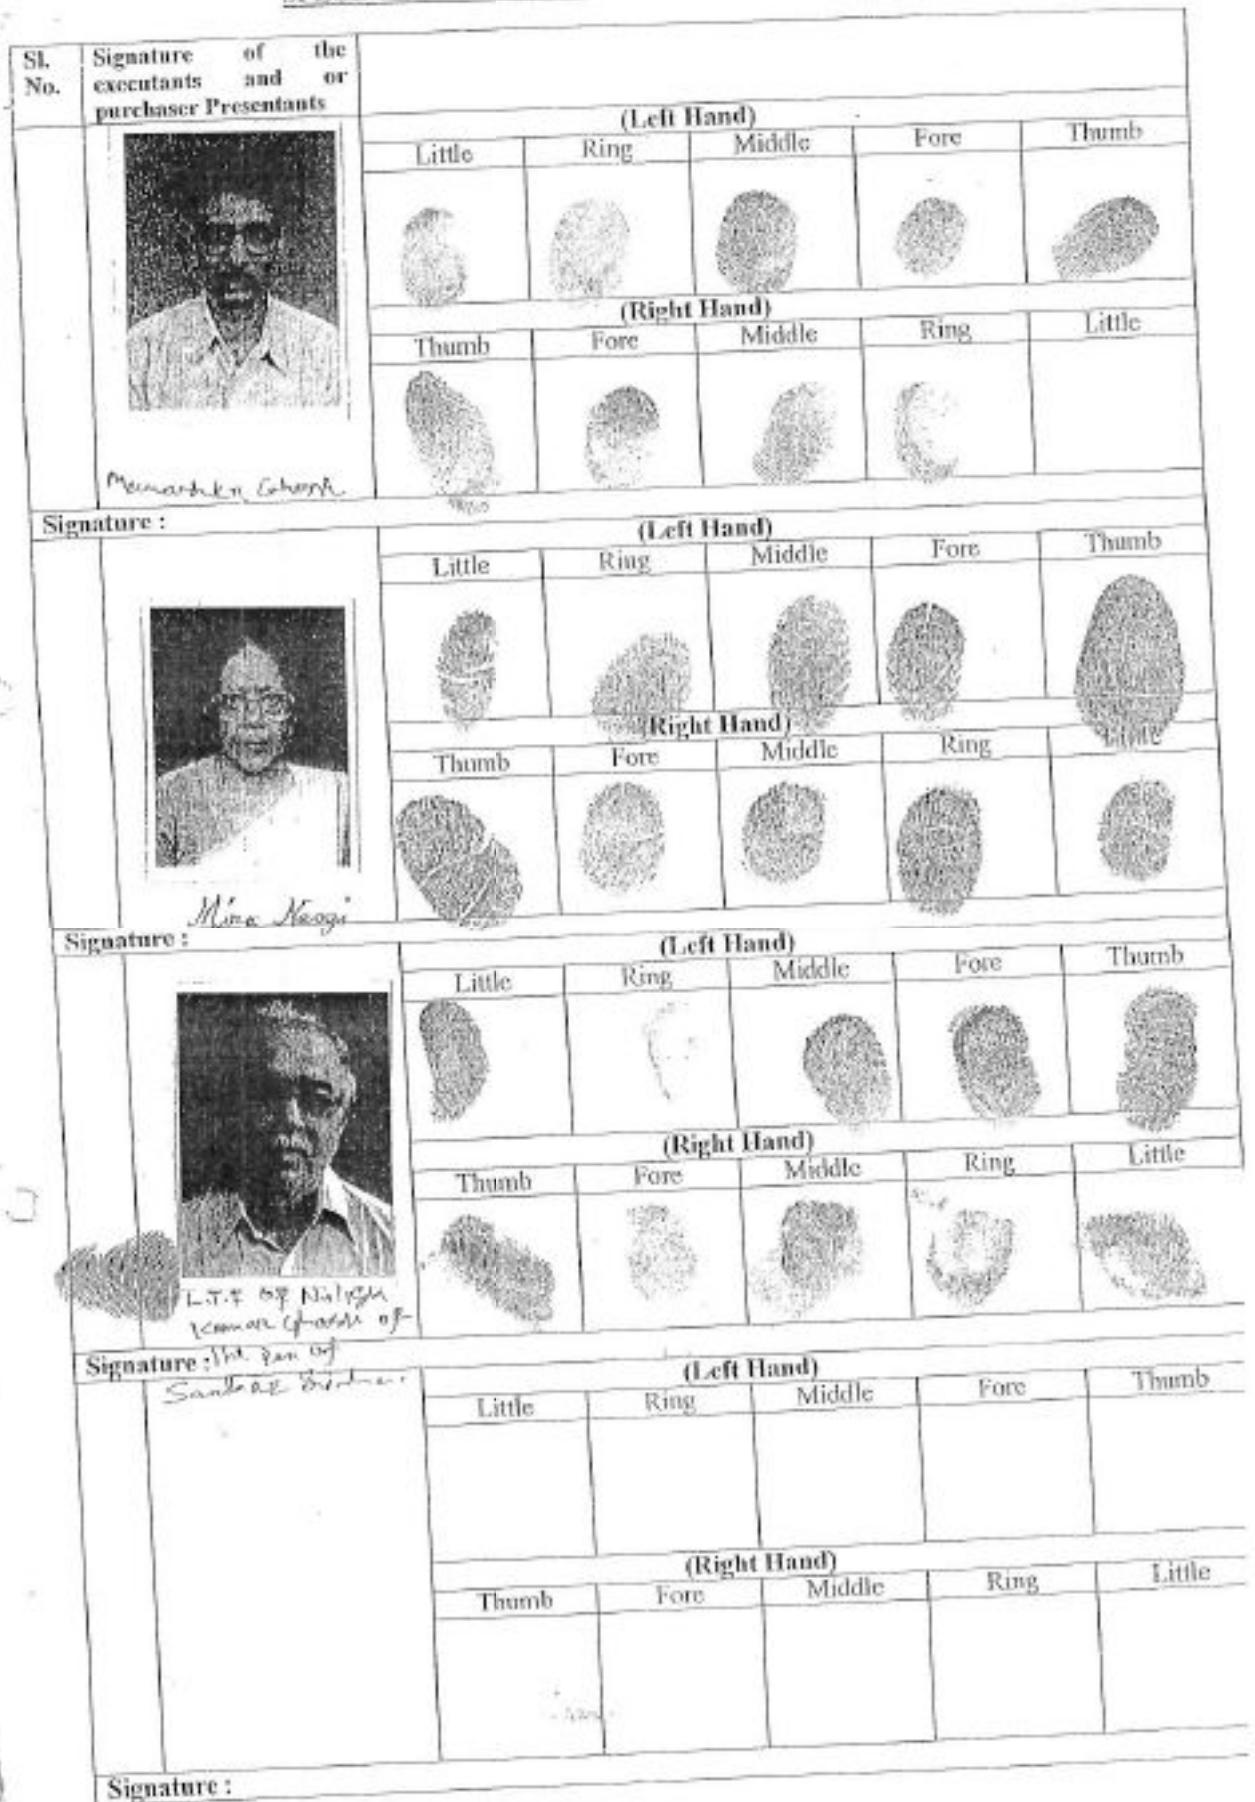 Sl. No.
Signature of the executants and or purchaser Presentants
(Left Hand)
Little Ring Middle Fore Thumb
(Right Hand)
Thumb Fore Middle Ring Little
Signature :
(Left Hand)
Little Ring Middle Fore Thumb
(Right Hand)
Thumb Fore Middle Ring Little
Mira Neogi
Signature :
(Left Hand)
Little Ring Middle Fore Thumb
(Right Hand)
Thumb Fore Middle Ring Little
L.T.I of
Kumar Ghosh of
Signature : the pen of
(Left Hand)
Little Ring Middle Fore Thumb
(Right Hand)
Thumb Fore Middle Ring Little
Signature :